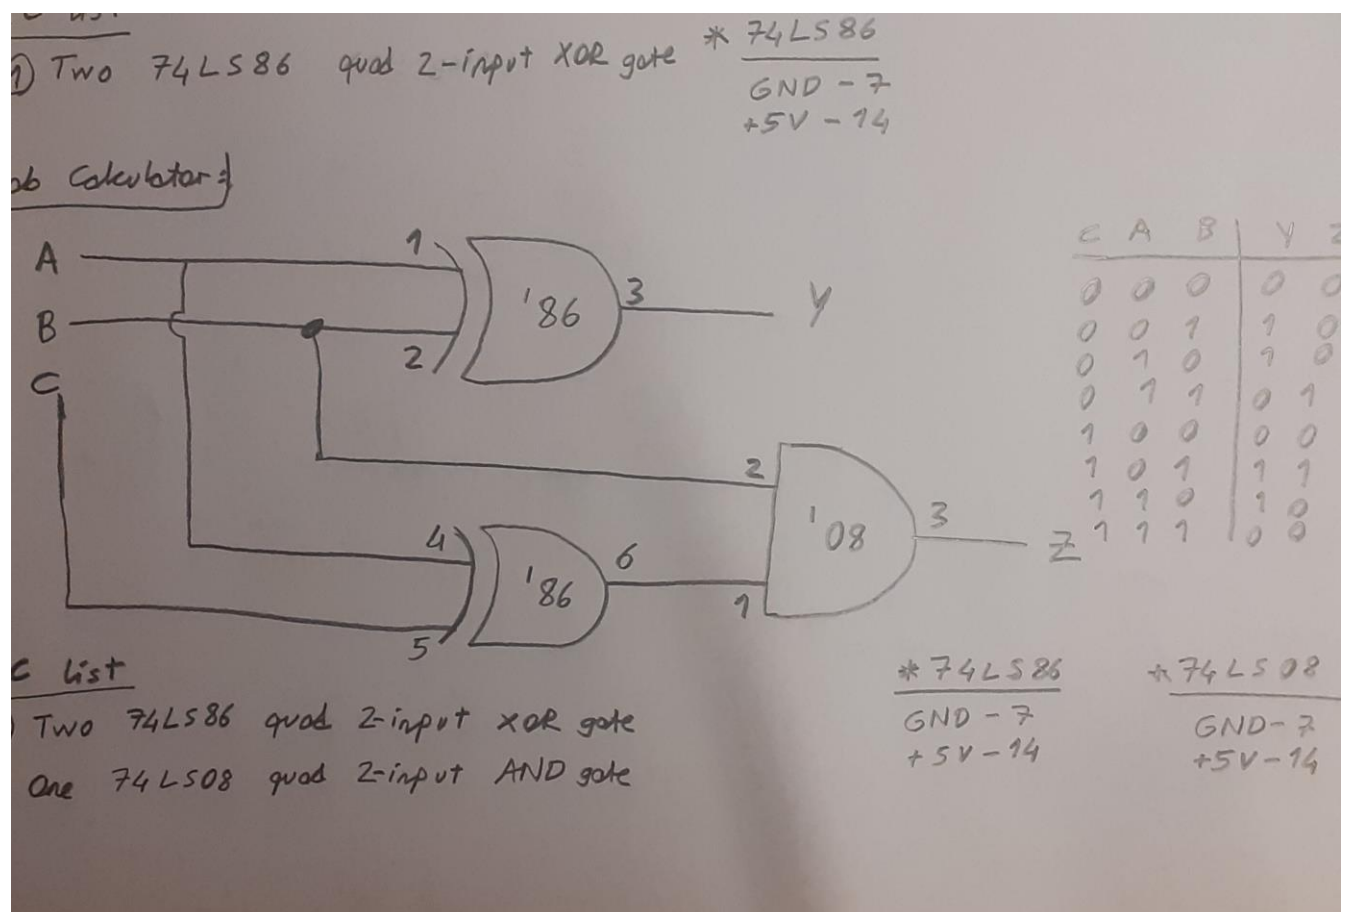 1) Two 74LS86 quad 2-input XOR gate
* 74LS86
GND - 7
+5V - 14
Calculator:
A
B
C
1
2
'86
3
Y
2
1
'08
3
Z
4
5
'86
6
C A B Y
0 0 0 0 0
0 0 1 1 0
0 1 0 1 0
0 1 1 0 1
1 0 0 0 0
1 0 1 1 1
1 1 0 1 0
1 1 1 0 0
C list
Two 74LS86 quad 2-input XOR gate
One 74LS08 quad 2-input AND gate
* 74LS86
GND - 7
+5V - 14
* 74LS08
GND - 7
+5V - 14